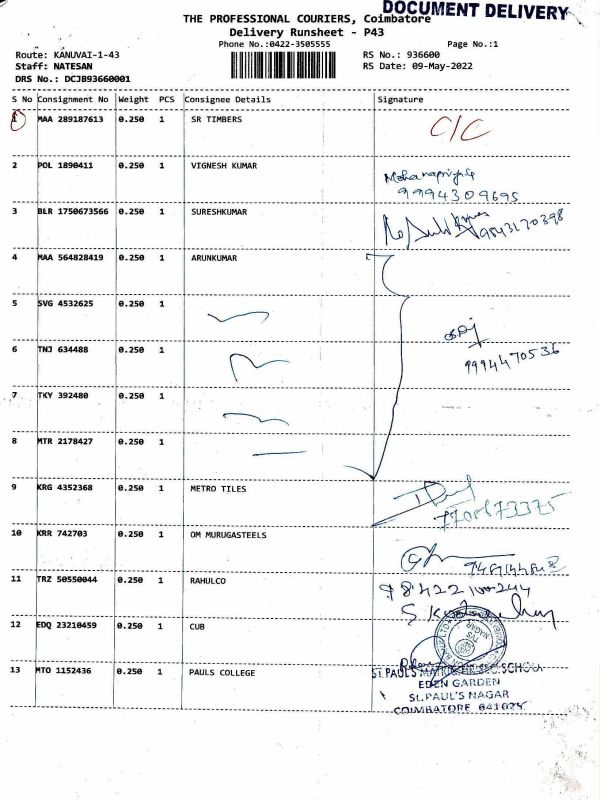 DOCUMENT DELIVERY
THE PROFESSIONAL COURIERS, Coimbatore
Delivery Runsheet - P43
Phone No.:0422-3505555 Page No.:1
Route: KANUVAI-1-43 RS No.: 936600
Staff: NATESAN RS Date: 09-May-2022
DRS No.: DCJB93660001
S No Consignment No Weight PCS Consignee Details Signature
1 MAA 289187613 0.250 1 SR TIMBERS C/C
2 POL 1890411 0.250 1 VIGNESH KUMAR
9994309695
3 BLR 1750673566 0.250 1 SURESHKUMAR 9843170398
4 MAA 564828419 0.250 1 ARUNKUMAR
5 SVG 4532625 0.250 1
6 TNJ 634488 0.250 1 9994470536
7 TKY 392480 0.250 1
8 MTR 2178427 0.250 1
9 KRG 4352368 0.250 1 METRO TILES
10 KRR 742703 0.250 1 OM MURUGASTEELS
11 TRZ 50550044 0.250 1 RAHULCO
12 EDQ 23210459 0.250 1 CUB
13 MTO 1152436 0.250 1 PAULS COLLEGE
EDEN GARDEN
St.PAUL'S NAGAR
COIMBATORE